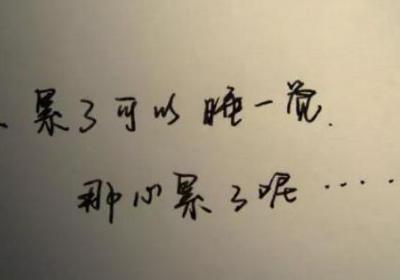 累了可以睡一觉.
那心累了呢······